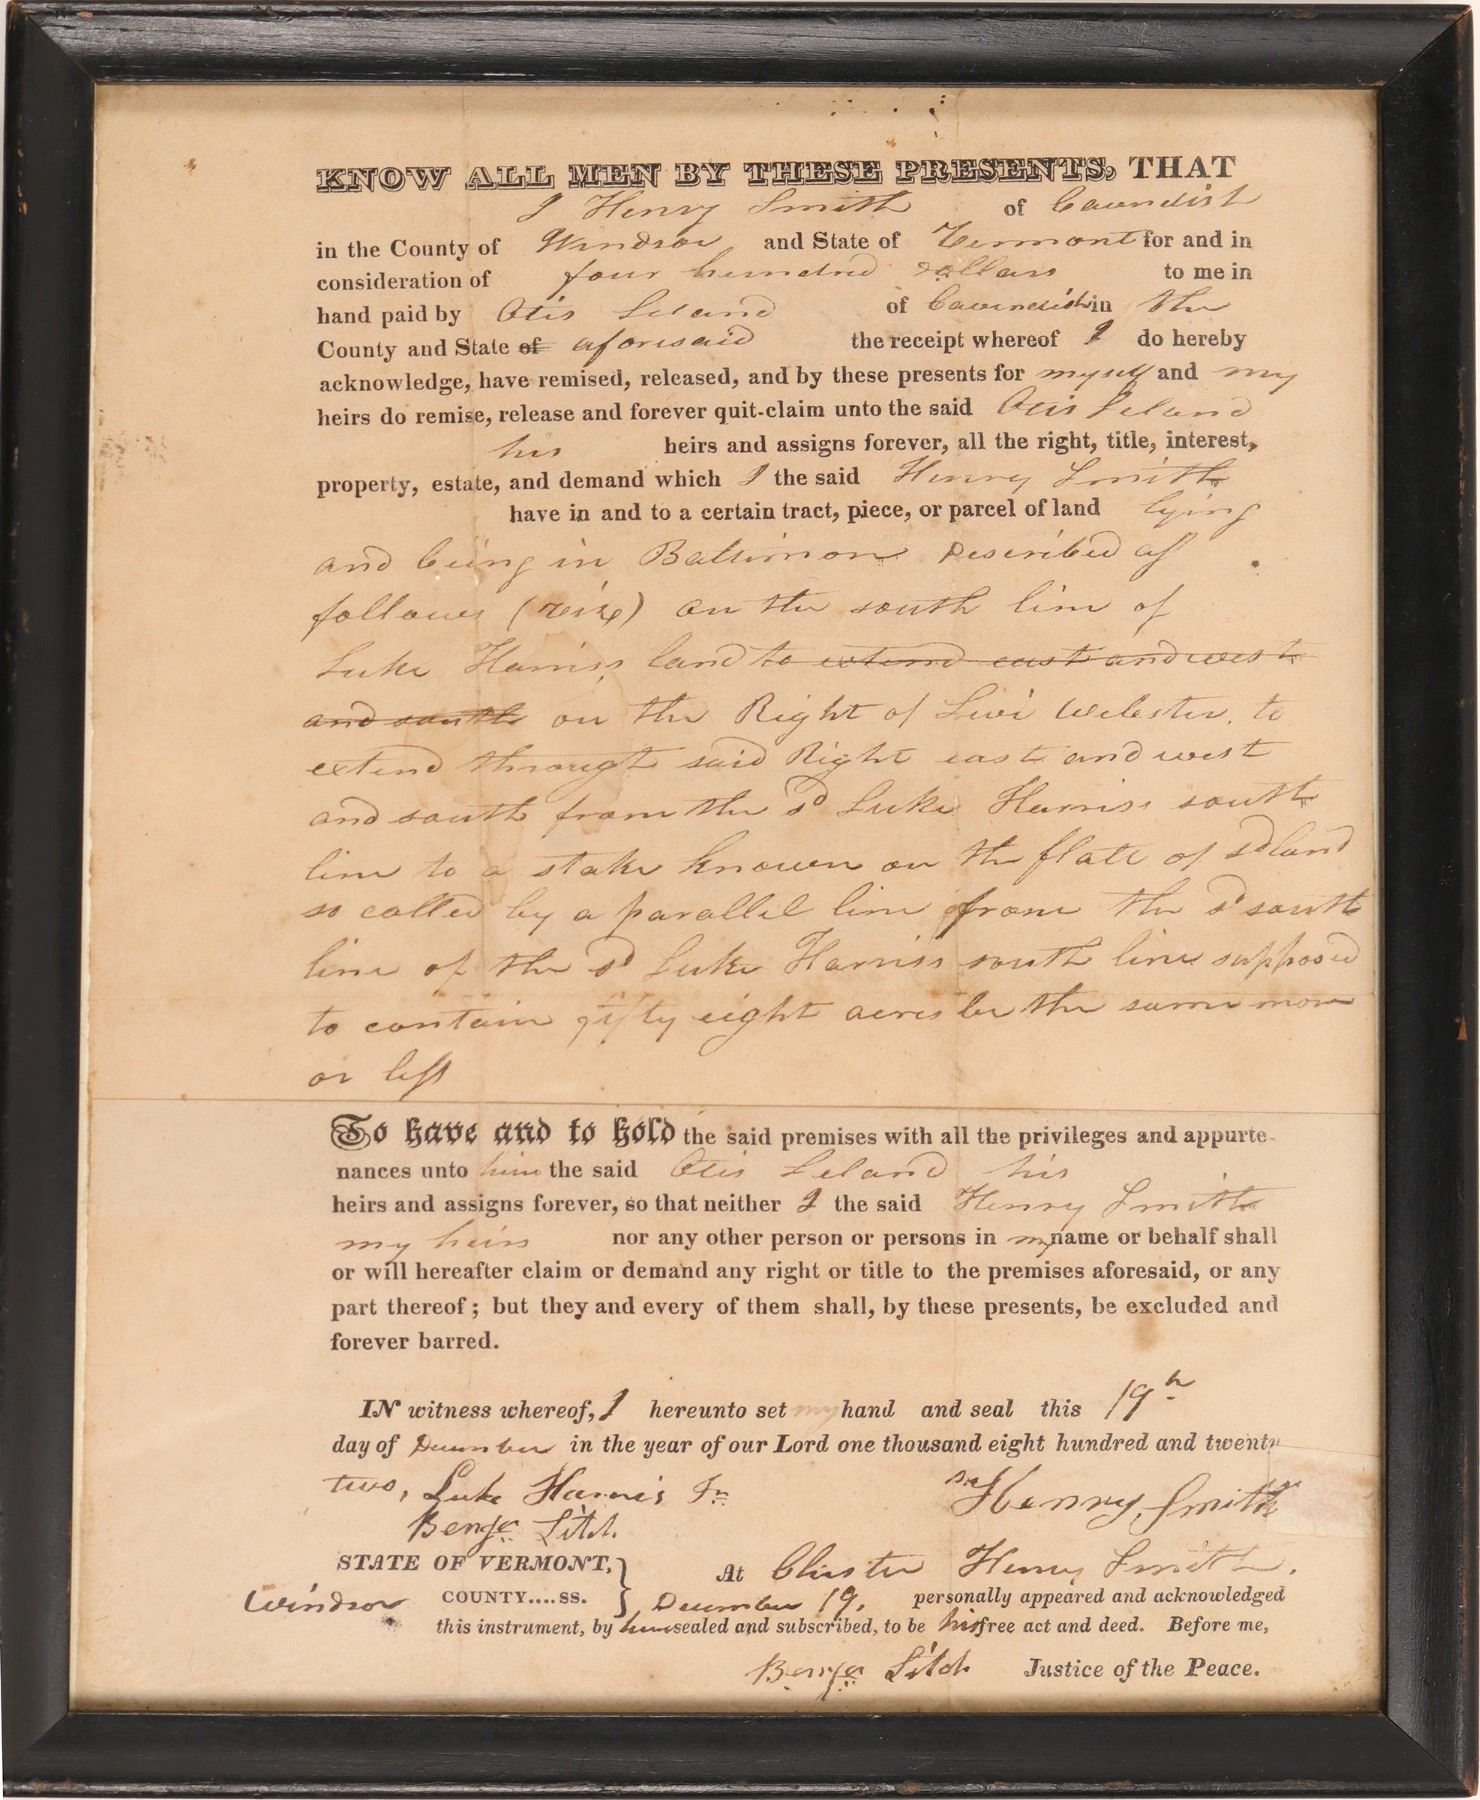 KNOW ALL MEN BY THESE PRESENTS, THAT
I Henry Smith of Cavendish
in the County of Windsor and State of Vermont for and in
consideration of four hundred dollars to me in
hand paid by Otis Leland of Cavendish in the
County and State of aforesaid the receipt whereof I do hereby
acknowledge, have remised, released, and by these presents for myself and my
heirs do remise, release and forever quit-claim unto the said Otis Leland
his heirs and assigns forever, all the right, title, interest,
property, estate, and demand which I the said Henry Smith
have in and to a certain tract, piece, or parcel of land lying
and being in Baltimore Described as
follows (viz) on the south line of
Luke Harriss land to extend east and west
and south on the Right of Levi Webster, to
extend through said Right east and west
and south from the sd Luke Harriss south
line to a stake known on the flatt of sd land
so called by a parallel line from the sd south
line of the sd Luke Harriss south line supposed
to contain fifty eight acres be the same more
or less
To have and to hold the said premises with all the privileges and appurte-
nances unto him the said Otis Leland his
heirs and assigns forever, so that neither I the said Henry Smith
my heirs nor any other person or persons in my name or behalf shall
or will hereafter claim or demand any right or title to the premises aforesaid, or any
part thereof; but they and every of them shall, by these presents, be excluded and
forever barred.
IN witness whereof, I hereunto set my hand and seal this 19th
day of December in the year of our Lord one thousand eight hundred and twenty
two, Luke Harris Jr Henry Smith
Benja Litch.
STATE OF VERMONT, } At Chester Henry Smith.
Windsor COUNTY....SS. } December 19, personally appeared and acknowledged
this instrument, by him sealed and subscribed, to be his free act and deed. Before me,
Benja Litch Justice of the Peace.